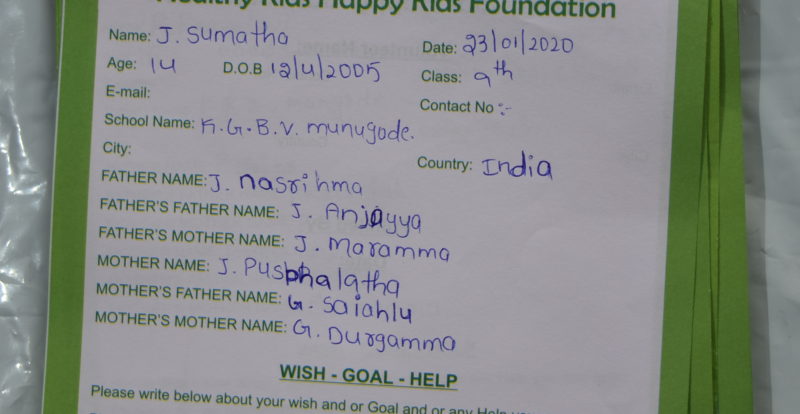 Healthy Kids Happy Kids Foundation
Name: J. Sumatha Date: 23/01/2020
Age: 14 D.O.B 12/4/2005 Class: 9th
E-mail: Contact No :-
School Name: K.G.B.V. munugode.
City: Country: India
FATHER NAME: J. nasrihma
FATHER'S FATHER NAME: J. Anjayya
FATHER'S MOTHER NAME: J. Maramma
MOTHER NAME: J. Pusphalatha
MOTHER'S FATHER NAME: G. Saiahlu
MOTHER'S MOTHER NAME: G. Durgamma
WISH - GOAL - HELP
Please write below about your wish and or Goal and or any Help